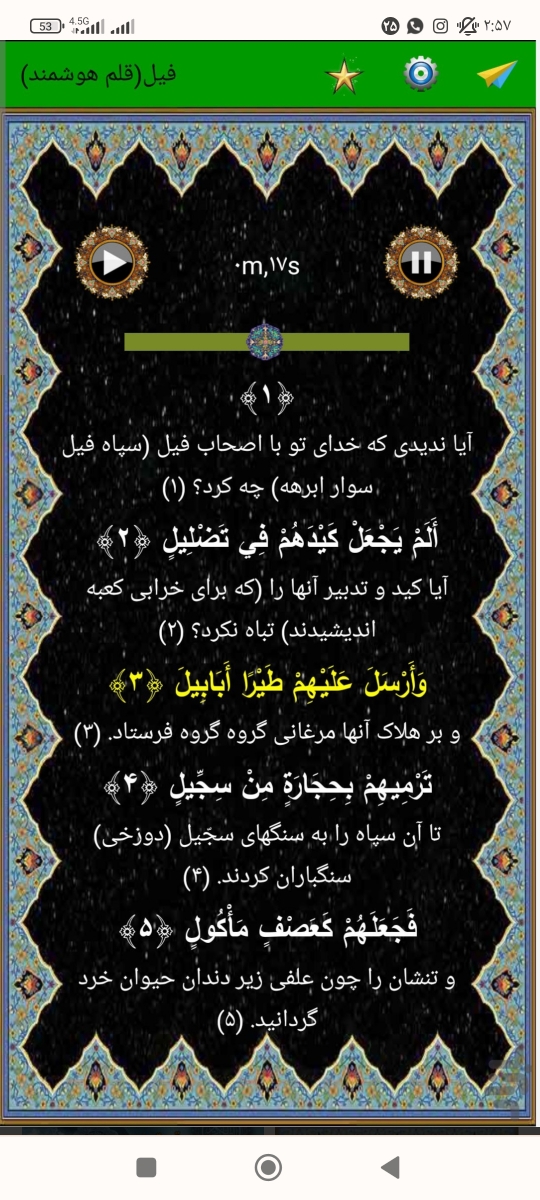 53 4.5G ۲۵ ۲:۵۷
فیل(قلم هوشمند)
۰m,۱۷s
﴿۱﴾
آیا ندیدی که خدای تو با اصحاب فیل (سپاه فیل
سوار ابرهه) چه کرد؟ (۱)
أَلَمْ يَجْعَلْ كَيْدَهُمْ فِي تَضْلِيلٍ ﴿۲﴾
آیا کید و تدبیر آنها را (که برای خرابی کعبه
اندیشیدند) تباه نکرد؟ (۲)
وَأَرْسَلَ عَلَيْهِمْ طَيْرًا أَبَابِيلَ ﴿۳﴾
و بر هلاک آنها مرغانی گروه گروه فرستاد. (۳)
تَرْمِيهِمْ بِحِجَارَةٍ مِنْ سِجِّيلٍ ﴿۴﴾
تا آن سپاه را به سنگهای سجّیل (دوزخی)
سنگباران کردند. (۴)
فَجَعَلَهُمْ كَعَصْفٍ مَأْكُولٍ ﴿۵﴾
و تنشان را چون علفی زیر دندان حیوان خرد
گردانید. (۵)